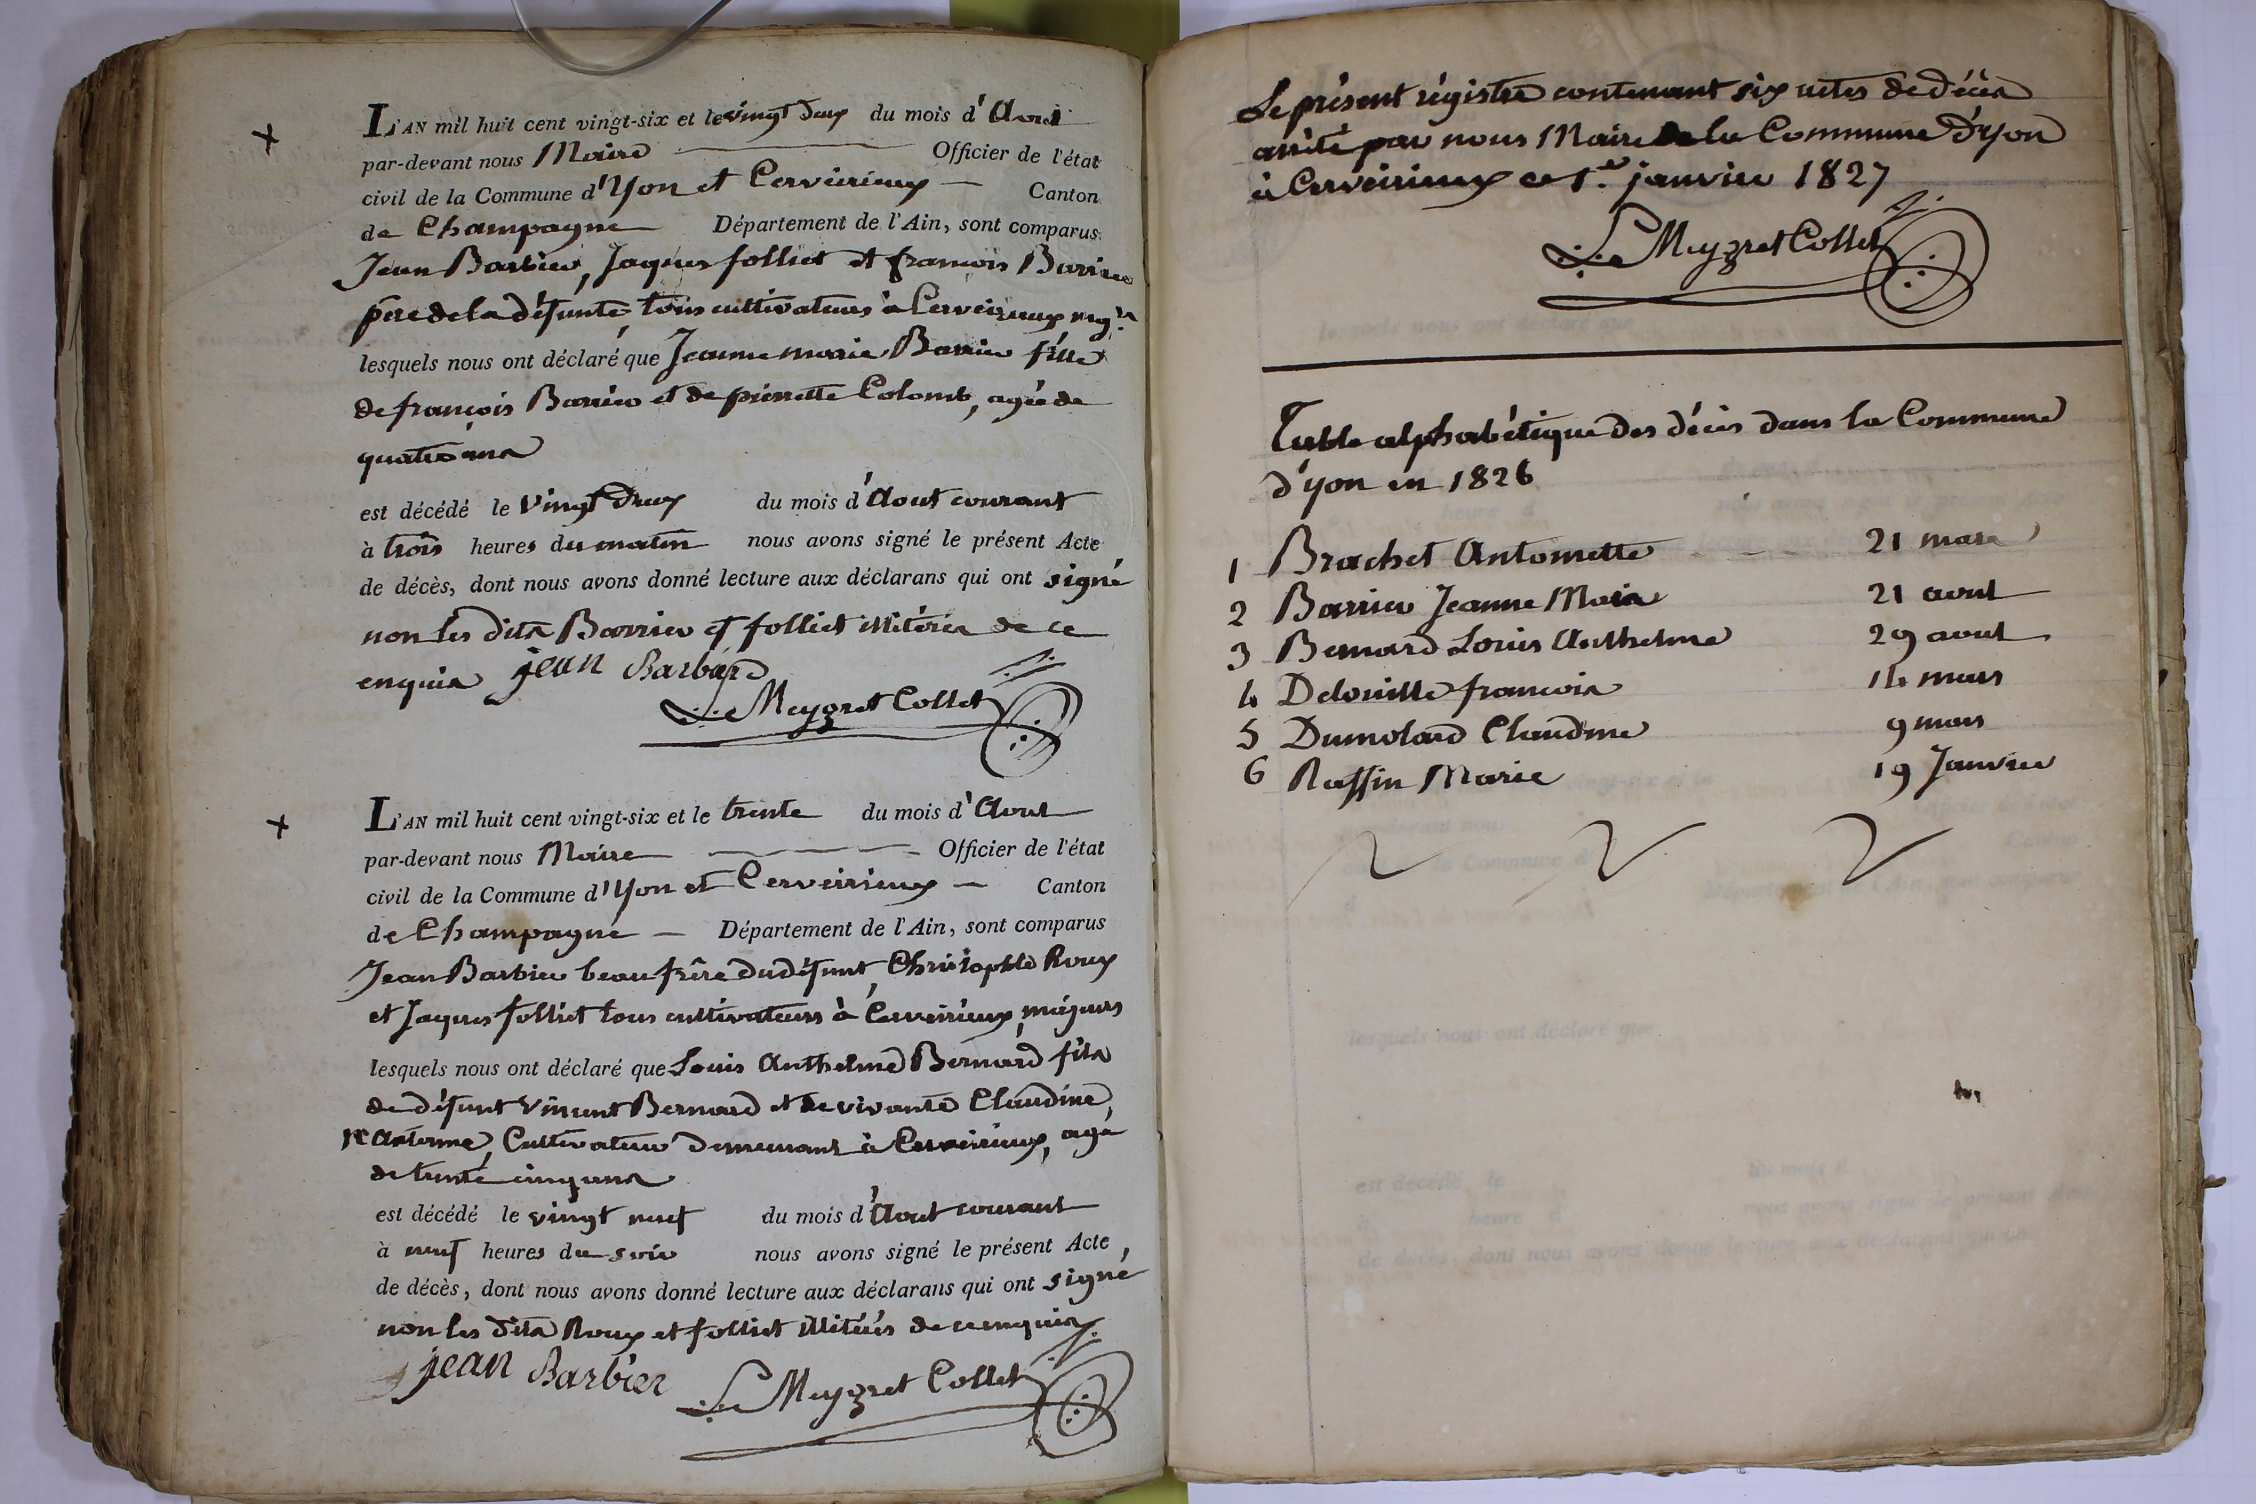 L'AN mil huit cent vingt-six et le vingt deux du mois d'Aout
par-devant nous Maire Officier de l'état
civil de la Commune d'Yon et Cerveirieux Canton
de Champagne Département de l'Ain, sont comparus
Jean Barbier, Jaques folliet et françois Barrier
père de la défunte, tous cultivateurs à Cerveirieux
lesquels nous ont déclaré que Jeanne marie Barrier fille
de françois Barrier et de pierrette Colomb, agée de
quatre ans
est décédé le vingt Deux du mois d'Aout courant
à trois heures du matin nous avons signé le présent Acte
de décès, dont nous avons donné lecture aux déclarans qui ont signé
non les dits Barrier et folliet illitérés de ce
enquis jean Barbier
Le Meygret Collet
L'AN mil huit cent vingt-six et le trente du mois d'Aout
par-devant nous Maire Officier de l'état
civil de la Commune d'Yon et Cerveirieux Canton
de Champagne Département de l'Ain, sont comparus
Jean Barbier beau frère du défunt, Christophle Roux
et Jaques folliet tous cultivateurs à Cerveirieux, majeurs
lesquels nous ont déclaré que Louis Anthelme Bernard fils
de défunt Vincent Bernard et de vivante Claudine
Cultivateur demeurant à Cerveirieux, agé
de trente cinq ans
est décédé le vingt neuf du mois d'Aout courant
à neuf heures du soir nous avons signé le présent Acte,
de décès, dont nous avons donné lecture aux déclarans qui ont signé
non les dits Roux et folliet illitérés de ce enquis
jean Barbier Le Meygret Collet
Le présent régistre contenant six actes de décès
arrêté par nous Maire de la Commune d'yon
à Cerveirieux ce 1.er janvier 1827
Le Meygret Collet
Table alphabétique des décès dans la Commune
d'yon en 1826
1 Brachet Antoinette 21 mars
2 Barrier Jeanne Marie 21 aout
3 Bernard Louis Anthelme 29 aout
4 Delouille françois 14 mars
5 Dumolard Claudine 9 mars
6 Raffin Marie 19 Janvier